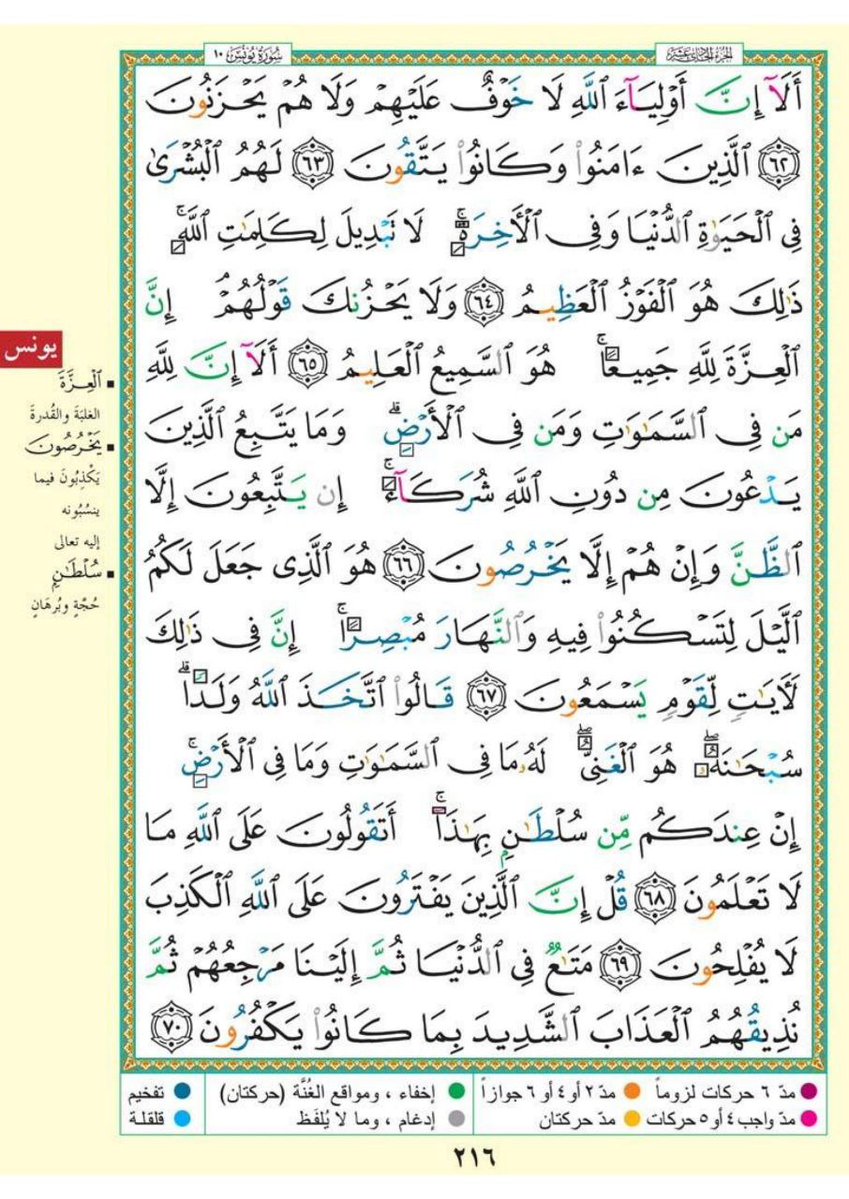 الجزء الحادي عشر
سورة يونس ١٠
أَلَآ إِنَّ أَوْلِيَآءَ ٱللَّهِ لَا خَوْفٌ عَلَيْهِمْ وَلَا هُمْ يَحْزَنُونَ
٦٢ ٱلَّذِينَ ءَامَنُوا۟ وَكَانُوا۟ يَتَّقُونَ ٦٣ لَهُمُ ٱلْبُشْرَىٰ
فِى ٱلْحَيَوٰةِ ٱلدُّنْيَا وَفِى ٱلْءَاخِرَةِ ۚ لَا تَبْدِيلَ لِكَلِمَٰتِ ٱللَّهِ ۚ
ذَٰلِكَ هُوَ ٱلْفَوْزُ ٱلْعَظِيمُ ٦٤ وَلَا يَحْزُنكَ قَوْلُهُمْ ۘ إِنَّ
ٱلْعِزَّةَ لِلَّهِ جَمِيعًا ۚ هُوَ ٱلسَّمِيعُ ٱلْعَلِيمُ ٦٥ أَلَآ إِنَّ لِلَّهِ
مَن فِى ٱلسَّمَٰوَٰتِ وَمَن فِى ٱلْأَرْضِ ۗ وَمَا يَتَّبِعُ ٱلَّذِينَ
يَدْعُونَ مِن دُونِ ٱللَّهِ شُرَكَآءَ ۚ إِن يَتَّبِعُونَ إِلَّا
ٱلظَّنَّ وَإِنْ هُمْ إِلَّا يَخْرُصُونَ ٦٦ هُوَ ٱلَّذِى جَعَلَ لَكُمُ
ٱلَّيْلَ لِتَسْكُنُوا۟ فِيهِ وَٱلنَّهَارَ مُبْصِرًا ۚ إِنَّ فِى ذَٰلِكَ
لَءَايَٰتٍ لِّقَوْمٍ يَسْمَعُونَ ٦٧ قَالُوا۟ ٱتَّخَذَ ٱللَّهُ وَلَدًا ۗ
سُبْحَٰنَهُۥ ۖ هُوَ ٱلْغَنِىُّ ۖ لَهُۥ مَا فِى ٱلسَّمَٰوَٰتِ وَمَا فِى ٱلْأَرْضِ ۚ
إِنْ عِندَكُم مِّن سُلْطَٰنٍۭ بِهَٰذَآ ۚ أَتَقُولُونَ عَلَى ٱللَّهِ مَا
لَا تَعْلَمُونَ ٦٨ قُلْ إِنَّ ٱلَّذِينَ يَفْتَرُونَ عَلَى ٱللَّهِ ٱلْكَذِبَ
لَا يُفْلِحُونَ ٦٩ مَتَٰعٌ فِى ٱلدُّنْيَا ثُمَّ إِلَيْنَا مَرْجِعُهُمْ ثُمَّ
نُذِيقُهُمُ ٱلْعَذَابَ ٱلشَّدِيدَ بِمَا كَانُوا۟ يَكْفُرُونَ ٧٠
يونس
ٱلْعِزَّةَ
الغلبَةَ والقُدرةَ
يَخْرُصُونَ
يَكْذِبُونَ فيما
ينسُبُونه
إليه تعالى
سُلْطَٰنٍ
حُجَّةٍ وبُرهَانٍ
مدّ ٦ حركات لزوماً
مدّ ٢ أو ٤ أو ٦ جوازاً
إخفاء ، ومواقع الغُنَّة (حركتان)
تفخيم
مدّ واجب ٤ أو ٥ حركات
مدّ حركتان
إدغام ، وما لا يُلفَظ
قلقلة
٢١٦